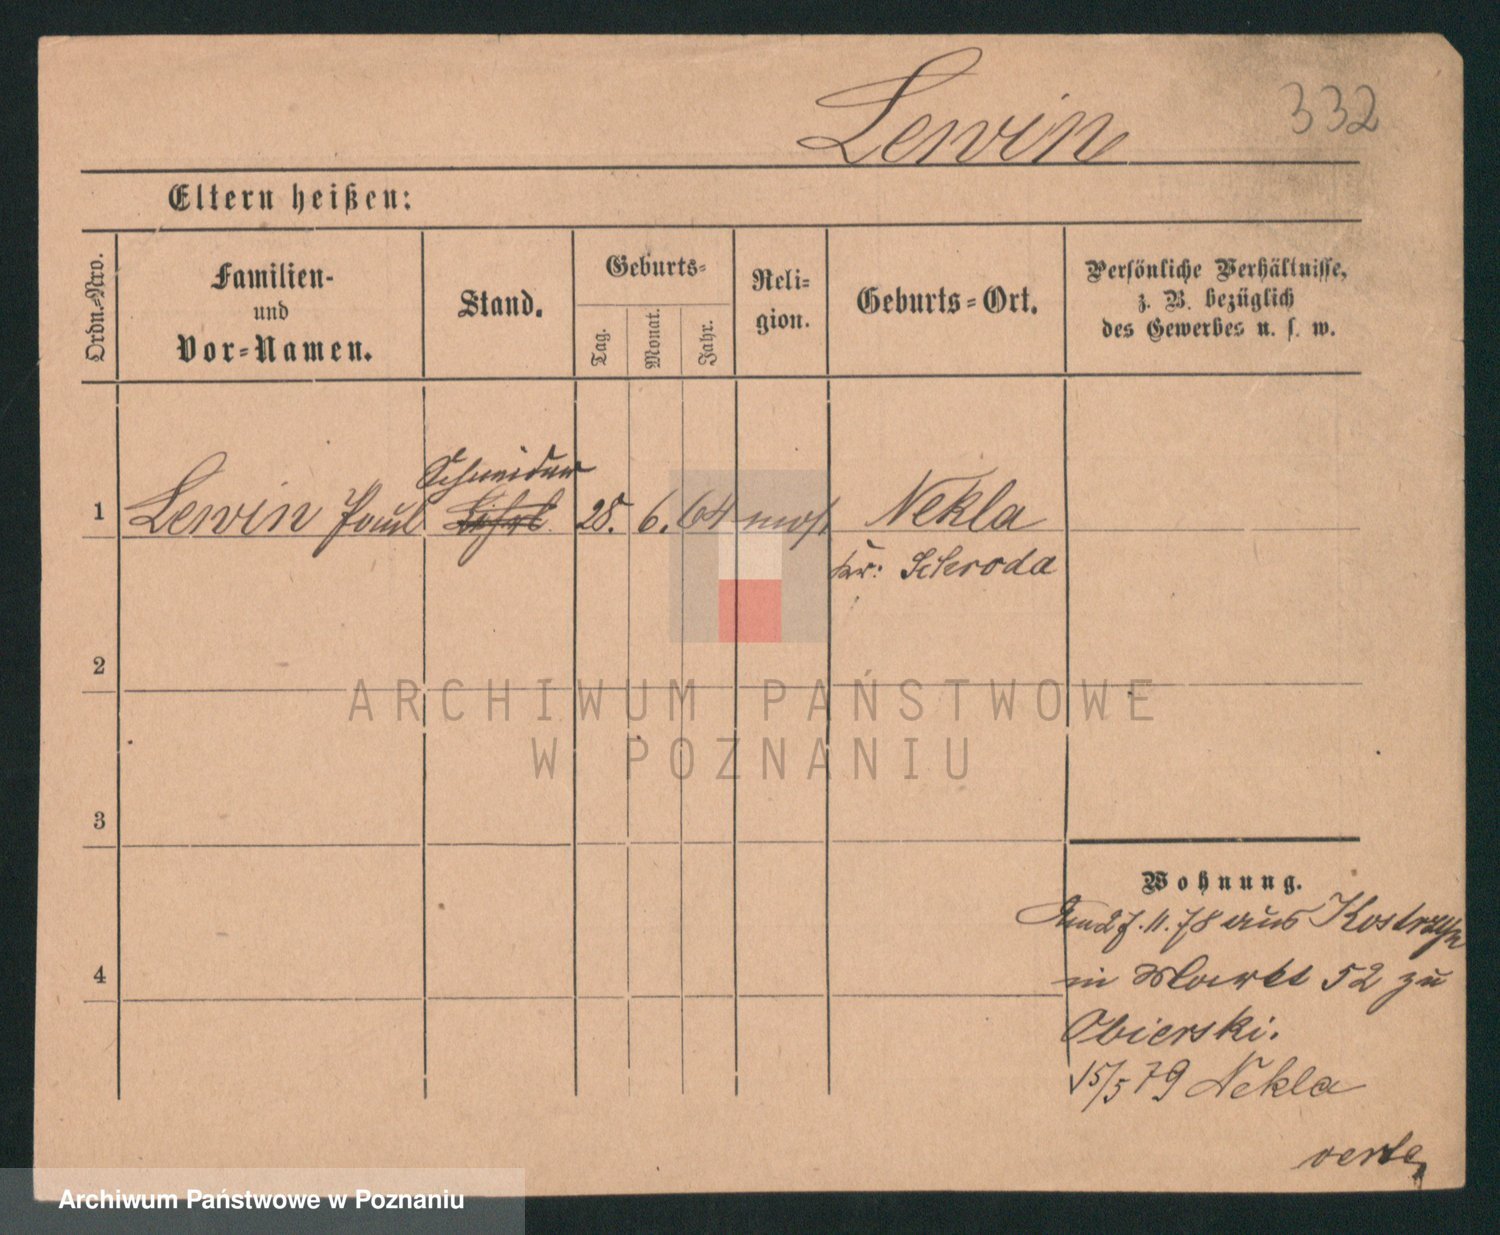 Lewin
332
Eltern heißen:
Ordn.-Nro.
Familien-
und
Vor-Namen.
Stand.
Geburts-
Tag.
Monat.
Jahr.
Reli-
gion.
Geburts-Ort.
Persönliche Verhältnisse,
z. B. bezüglich
des Gewerbes u. s. w.
Schneider
1 Lewin Paul 28. 6. 64 mos. Nekla
Kr: Schroda
2
3
4
ARCHIWUM PAŃSTWOWE
W POZNANIU
Wohnung.
27.11.78 aus Kostrzyn
in Markt 52 zu
Obierski.
15/5 79 Nekla
verte
Archiwum Państwowe w Poznaniu